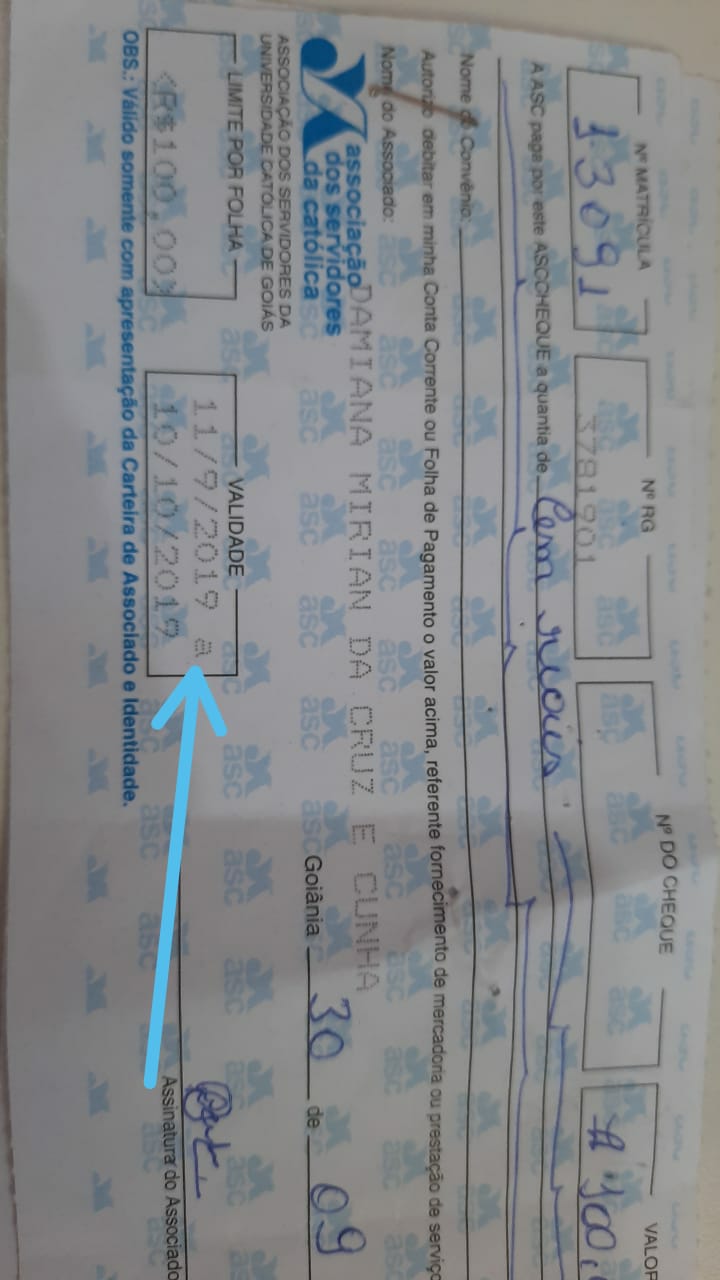 Nº MATRÍCULA Nº RG Nº DO CHEQUE VALOR
13091 3781901 100,
A ASC paga por este ASCCHEQUE a quantia de Cem reais
Nome do Convênio:
Autorizo debitar em minha Conta Corrente ou Folha de Pagamento o valor acima, referente fornecimento de mercadoria ou prestação de serviço
Nome do Associado:
DAMIANA MIRIAN DA CRUZ E CUNHA
associação
dos servidores
da católica
Goiânia 30 de 09
ASSOCIAÇÃO DOS SERVIDORES DA
UNIVERSIDADE CATÓLICA DE GOIÁS
LIMITE POR FOLHA VALIDADE
11/9/2019 a
<R$100,00> 10/10/2019
Assinatura do Associado
OBS.: Válido somente com apresentação da Carteira de Associado e Identidade.